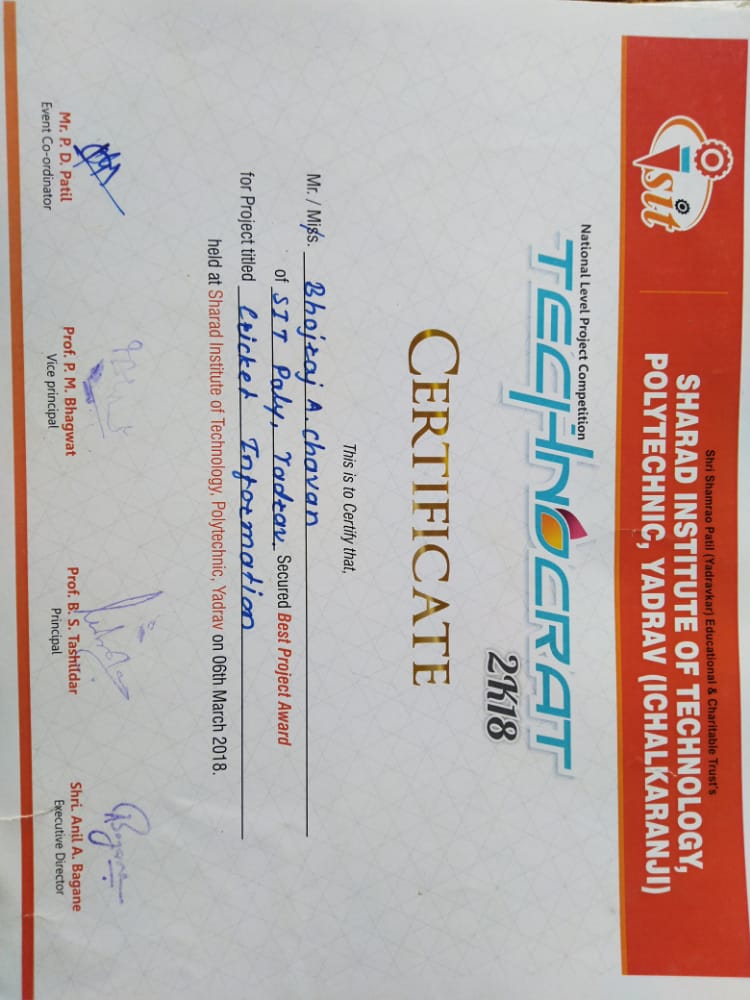 Shri Shamrao Patil (Yadravkar) Educational & Charitable Trust's
sit
SHARAD INSTITUTE OF TECHNOLOGY,
POLYTECHNIC, YADRAV (ICHALKARANJI)
National Level Project Competition
TECHNOCRAT
2K18
CERTIFICATE
This is to Certify that,
Mr. / Miss. Bhojraj A. Chavan
of SIT Poly, Yadrav. Secured Best Project Award
for Project titled Cricket Information
held at Sharad Institute of Technology, Polytechnic, Yadrav on 06th March 2018.
Mr. P. D. Patil
Event Co-ordinator
Prof. P. M. Bhagwat
Vice principal
Prof. B. S. Tashildar
Principal
ABagane
Shri. Anil A. Bagane
Executive Director